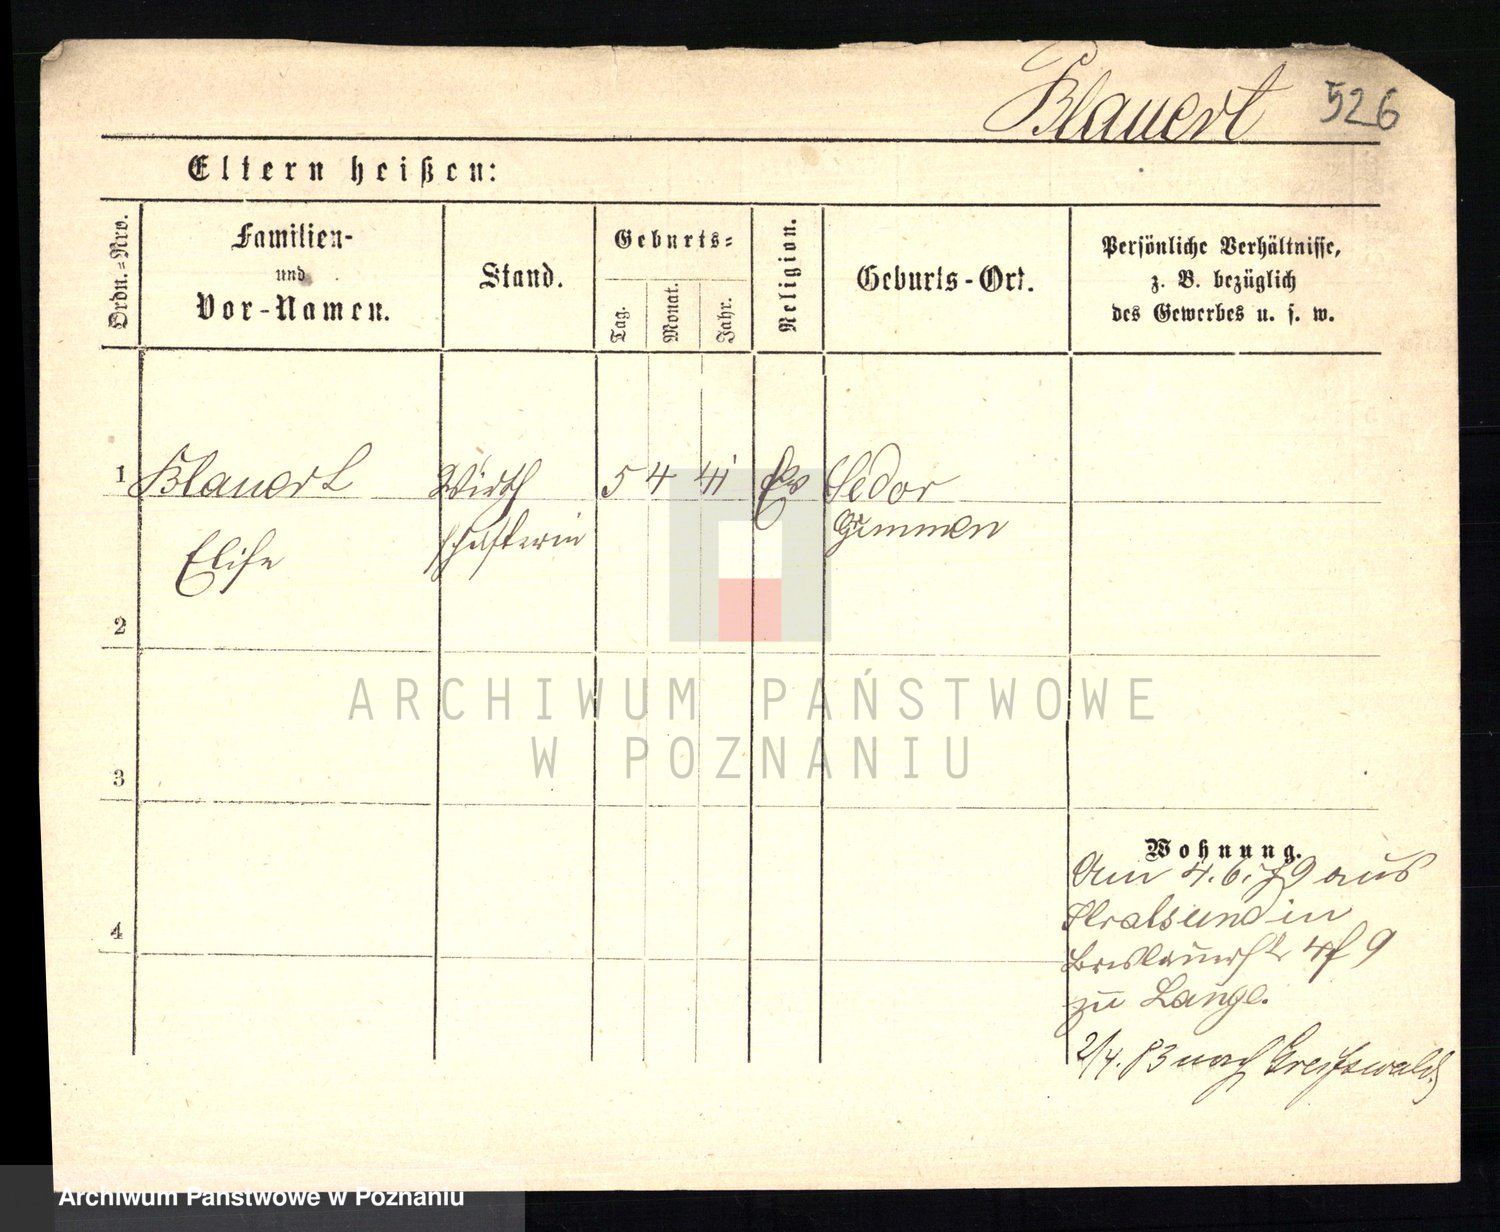 Blauert 526
Eltern heißen:
Ordn.=Nro.
Familien-
und
Vor-Namen.
Stand.
Geburts=
Tag.
Monat.
Jahr.
Religion.
Geburts-Ort.
Persönliche Verhältnisse,
z. B. bezüglich
des Gewerbes u. s. w.
1 Blauert Wirth 5 4 41 Ev Sedor
Elise schafterin Grimmen
2
3
4
Wohnung.
Am 4.6.79 aus
Stralsund in
Breslauerstr 9
zu Lange.
2/4.83 nach Greifswald
ARCHIWUM PAŃSTWOWE
W POZNANIU
Archiwum Państwowe w Poznaniu